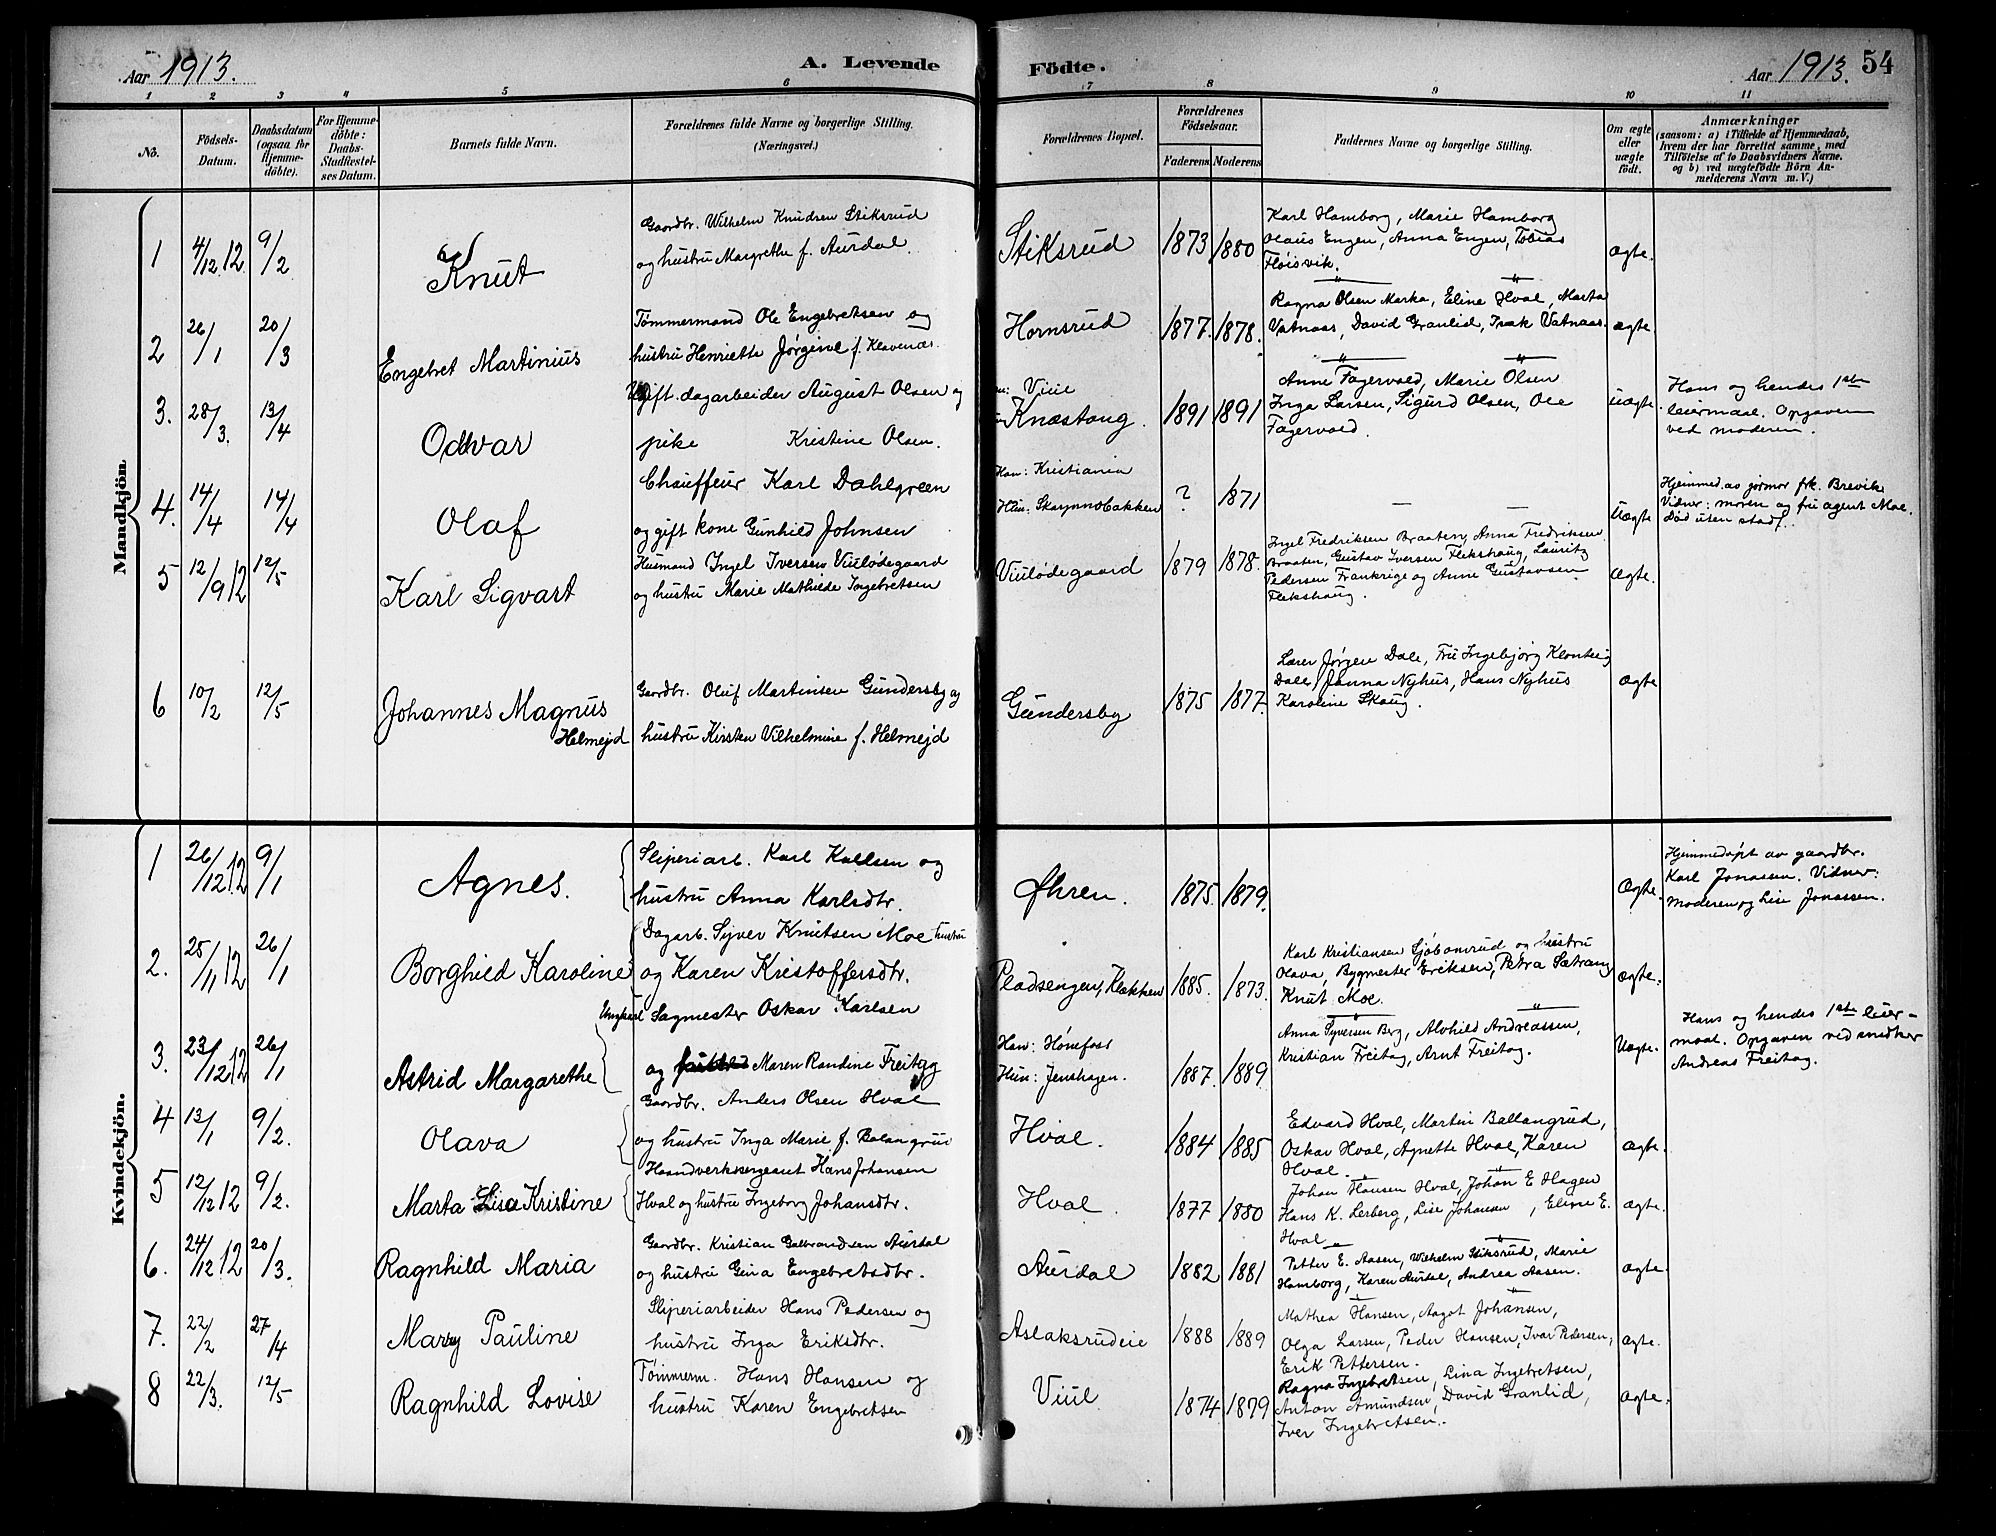 Aar 1913.
A. Levende Födte.
Aar 1913. 54
1 2 3 4 5 6 7 8 9 10 11
No.
Födsels-Datum.
Daabsdatum (ogsaa for Hjemme-döbte).
For Hjemme-döbte: Daabs-Stadfæstel-ses Datum.
Barnets fulde Navn.
Forældrenes fulde Navne og borgerlige Stilling.
(Næringsvei.)
Forældrenes Bopæl.
Forældrenes Födselsaar.
Faderens Moderens
Faddernes Navne og borgerlige Stilling.
Om ægte eller uægte födt.
Anmærkninger
(saasom: a) i Tilfælde af Hjemmedaab,
hvem der har forrettet samme, med
Tilföielse af to Daabsvidners Navne.
og b) ved uægtefödte Börn An-
melderens Navn m. V.)
Mandkjön.
1 4/12.12 9/2 Knut
Gaardbr. Wilhelm Knudsen Stiksrud
og hustru Margrethe f. Aurdal.
Stiksrud 1873 1880
Karl Hamborg, Marie Hamborg
Olaus Engen, Anna Engen, Tobias
Fløisvik.
ægte.
2 26/1 20/3 Engebret Martinius
Tømmermand Ole Engebretsen og
hustru Henriette Jørgine f. Klavenæs.
Hornsrud 1877. 1878.
Ragna Olsen Marka, Eline Hval, Marta
Vatnaas, David Granlid, Isak Vatnaas.
ægte.
3. 28/3. 13/4 Odvar
Ugift dagarbeider August Olsen og
pike Kristine Olsen.
Viul
Knæstang. 1891 1891
Anne Fagervold, Marie Olsen
Inga Larsen, Sigurd Olsen, Ole
Fagervold.
uægte.
Hans og hendes 1ste
leiermaal. Opgaven
ved moderen.
4. 14/4 14/4 Olaf
Chauffeur Karl Dahlgreen
og gift kone Gunhild Johnsen
Han: Kristiania
Hun: Skarpnobakken ? 1871
— —
Uægte
Hjemmed. av jormor frk. Brevik
Vidner: moren og fru agent Moe.
Død uten stadf.
5 12/9 12 12/5 Karl Sigvart
Husmand Ingel Iversen Viulødegaard
og hustru Marie Mathilde Ingebretsen
Viulødegaard 1879 1878.
Ingel Fredriksen Braaten, Anna Fredriksen
Braaten, Gustav Iversen Flekshaug, Lauritz
Pedersen Frankrige og Anne Gustavsen
Flekshaug.
ægte.
6 10/2 12/5 Johannes Magnus
Helmejd
Gaardbr. Oluf Martinsen Gundersby og
hustru Kirsten Vilhelmine f. Helmejd
Gundersby 1875 1877.
Lærer Jørgen Dale, Fru Ingebjørg
Dale, Janna Nyhus, Hans Nyhus
Karoline Skaug.
ægte
Kvindekjön.
1 26/12.12 9/1 Agnes.
Sliperiarb. Karl Kallsen og
hustru Anna Karlsdtr.
Øhren. 1875. 1879.
ægte.
Hjemmedøpt av gaardbr.
Karl Jonassen. Vidner:
Moderen og Lise Jonassen.
2. 25/11 12 26/1 Borghild Karoline
Dagarb. Syver Knutsen Moe hustru
og Karen Kristoffersdtr.
Pladsengen, Klækken 1885. 1873.
Karl Kristiansen Sjøbomrud og hustru
Olava, Bygmester Eriksen, Petra Sætrang
Knut Moe.
ægte.
3. 23/12.12 26/1 Astrid Margarethe
Ungkarl Sagmester Oskar Karlsen
og Maren Randine Freitag
Han: Hønefoss
Hun: Jenshagen. 1887. 1889.
Anna Syversen Berg, Alvhild Andreassen,
Kristian Freitag, Arnt Freitag.
Uægte.
Hans og hendes 1ste leier-
maal. Opgaven ved snedker
Andreas Freitag.
4 13/1 9/2. Olava
Gaardbr. Anders Olsen Hval
og hustru Inga Marie f. Balangrud
Hval. 1884 1885
Edvard Hval, Martin Ballangrud,
Oskar Hval, Agnette Hval, Karen
Hval.
ægte.
5 12/12 12 9/2. Marta Lisa Kristine
Haandverkssergeant Hans Johansen
Hval og hustru Ingeborg Johansdtr.
Hval. 1877 1880
Johan Hansen Hval, Johan E Hagen
Hans K. Lerberg, Lise Johansen, Eline E.
Hval
ægte.
6. 24/12 12 20/3. Ragnhild Maria
Gaardbr. Kristian Gulbrandsen Aurdal
og hustru Gina Engebretsdtr.
Aurdal 1882 1881
Petter E. Aasen, Wilhelm Stiksrud, Marie
Hamborg, Karen Aurdal, Andrea Aasen.
ægte.
7. 22/2 27/4 Mary Pauline
Sliperiarbeider Hans Pedersen og
hustru Inga Eriksdtr.
Aslaksrudeie 1888 1889
Mathea Hansen, Aagot Johansen,
Olga Larsen, Peder Hansen, Ivar Pedersen,
Erik Pettersen.
ægte.
8 22/3. 12/5 Ragnhild Lovise
Tømmerm. Hans Hansen og
hustru Karen Engebretsen
Viul 1874 1879
Ragna Ingebretsen, Lina Ingebretsen,
Anton Amundsen, David Granlid,
Iver Ingebretsen.
ægte.